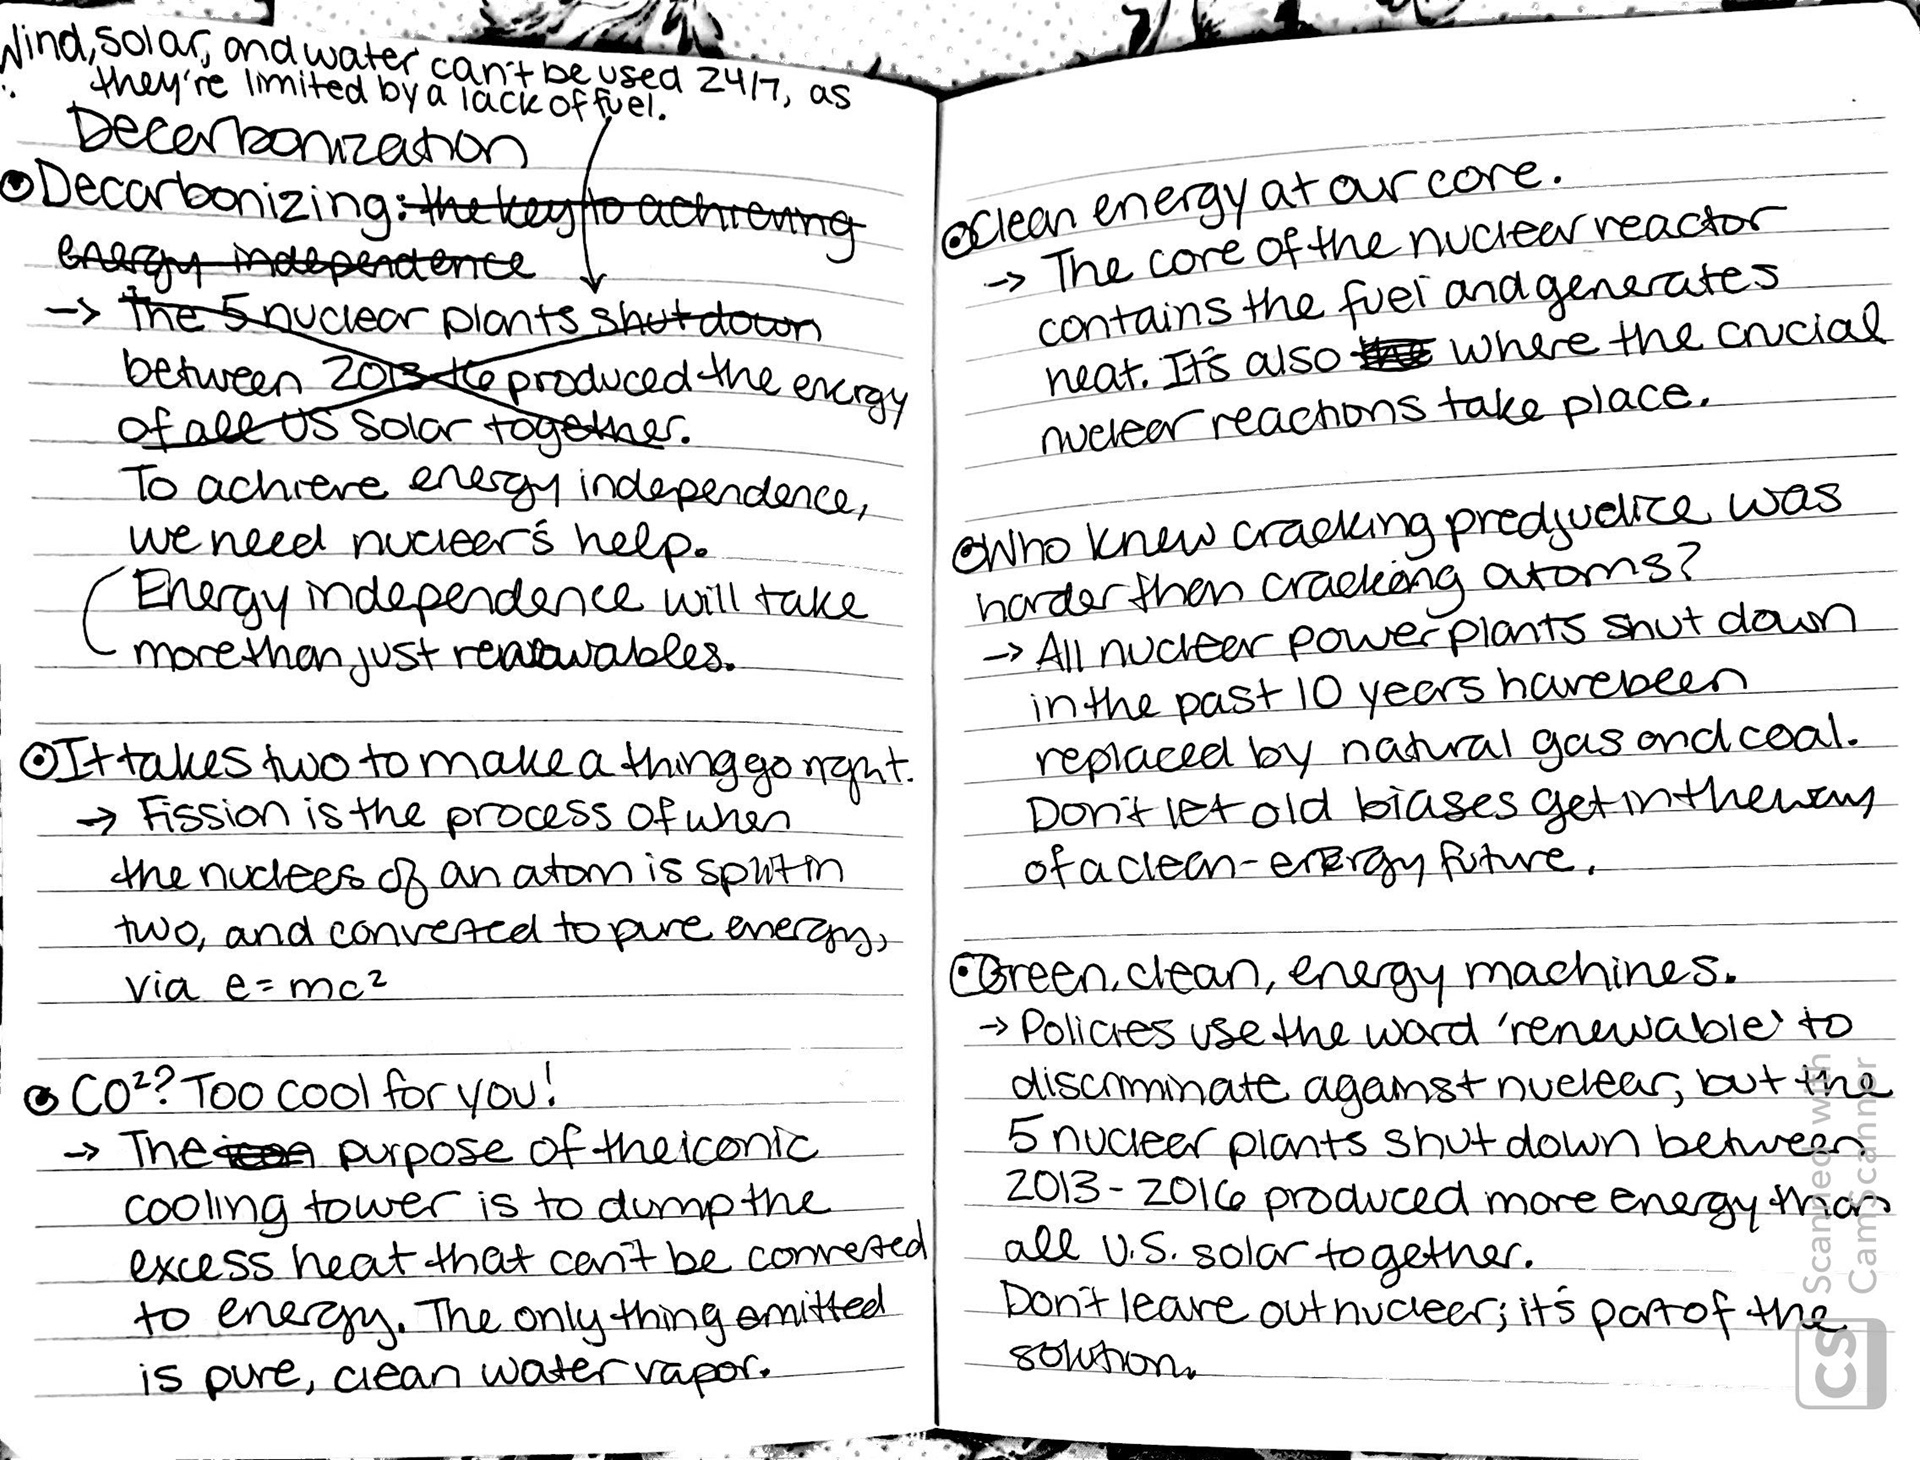 Wind, solar, and water can't be used 24/7, as
they're limited by a lack of fuel.
Decarbonization
Decarbonizing: the key to achieving
energy independence
-> The 5 nuclear plants shut down
between 2013-16 produced the energy
of all US solar together.
To achieve energy independence,
we need nuclear's help.
Energy independence will take
more than just renewables.
It takes two to make a thing go right.
-> Fission is the process of when
the nuclees of an atom is split in
two, and converted to pure energy,
via e=mc²
CO²? Too cool for you!
-> The icon purpose of the iconic
cooling tower is to dump the
excess heat that can't be converted
to energy. The only thing emitted
is pure, clean water vapor.
Clean energy at our core.
-> The core of the nuclear reactor
contains the fuel and generates
heat. It's also the where the crucial
nuclear reactions take place.
Who knew cracking predjudice was
harder then cracking atoms?
-> All nuclear power plants shut down
in the past 10 years have been
replaced by natural gas and coal.
Don't let old biases get in the way
of a clean-energy future.
Green, clean, energy machines.
-> Policies use the word 'renewable' to
discriminate against nuclear, but the
5 nuclear plants shut down between
2013-2016 produced more energy than
all U.S. solar together.
Don't leave out nuclear; it's part of the
solution.
CS Scanned with
CamScanner